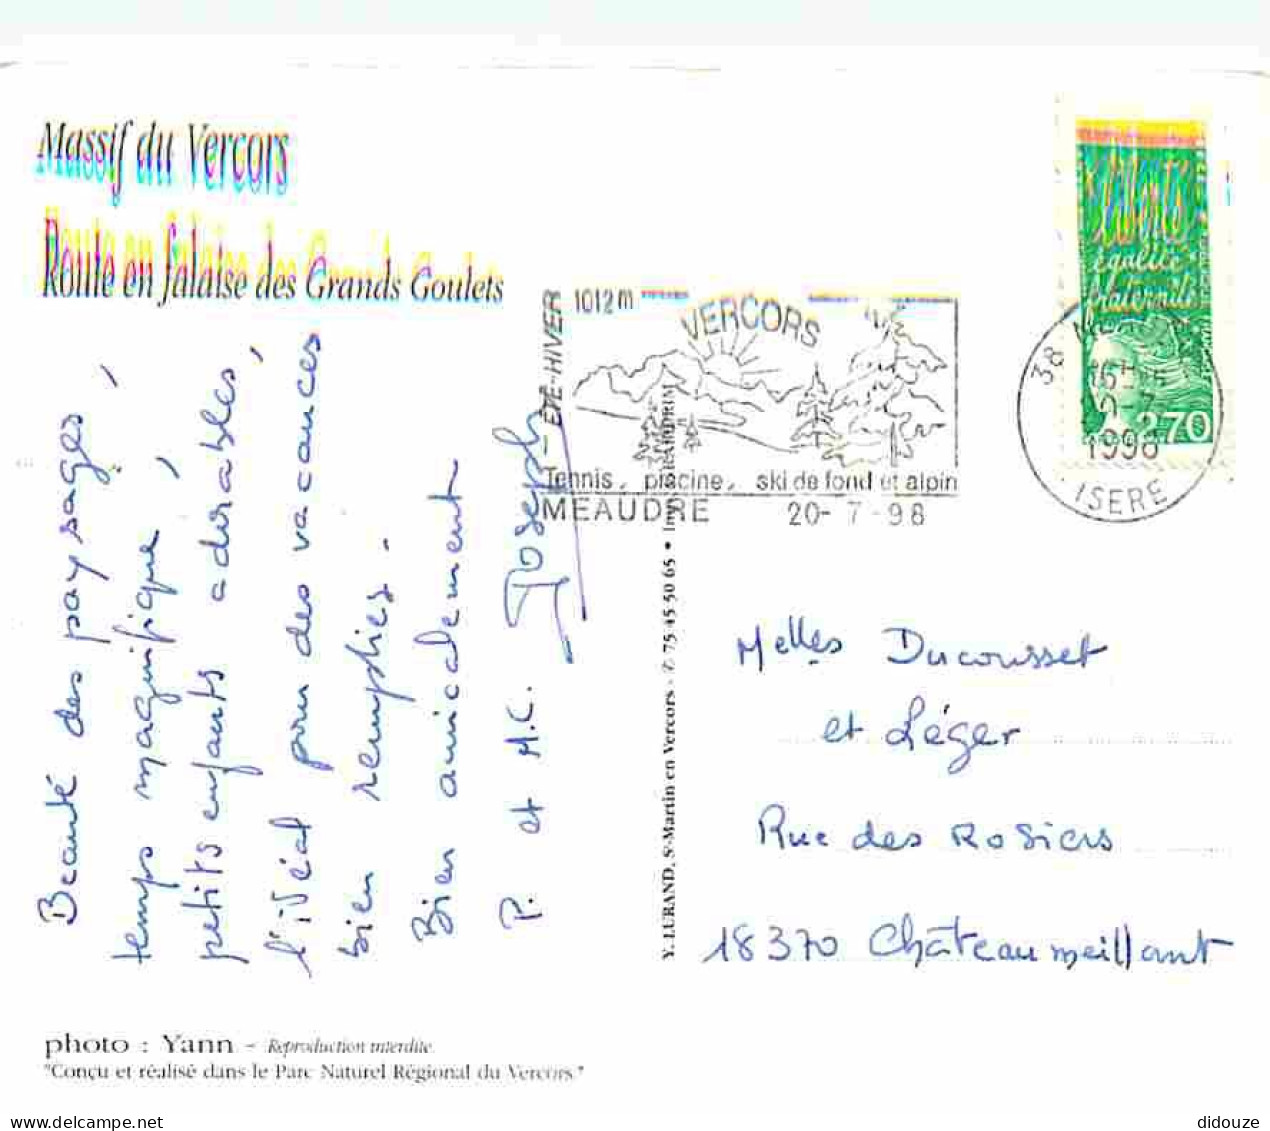 Massif du Vercors
Route en falaise des Grands Goulets
Beauté des paysages,
temps magnifique,
petits enfants adorables,
l'idéal pour des vacances
bien remplies.
Bien amicalement
P. et M.C. Joseph
ÉTÉ-HIVER
1012 m
VERCORS
Tennis, piscine, ski de fond et alpin
MEAUDRE 20-7-98
38
1998
ISERE
Liberté
égalité
fraternité
2,70
Y. LURAND, St-Martin en Vercors - ✆ 75 45 50 65 •
Melles Ducousset
et Léger
Rue des Rosiers
18370 Châteaumeillant
photo : Yann - Reproduction interdite.
"Conçu et réalisé dans le Parc Naturel Régional du Vercors."
delcampe.net
didouze